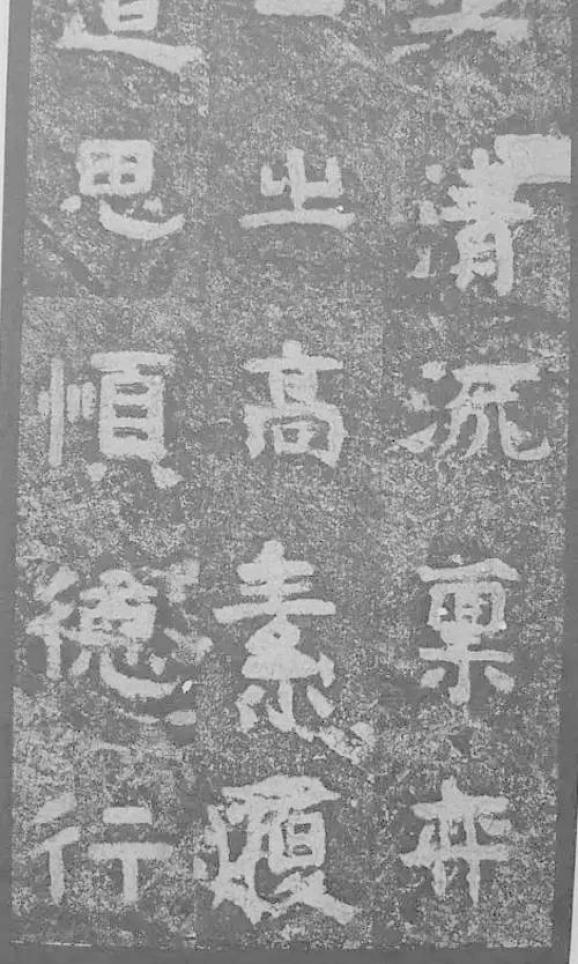 清流稟
之高素履
道思順德行